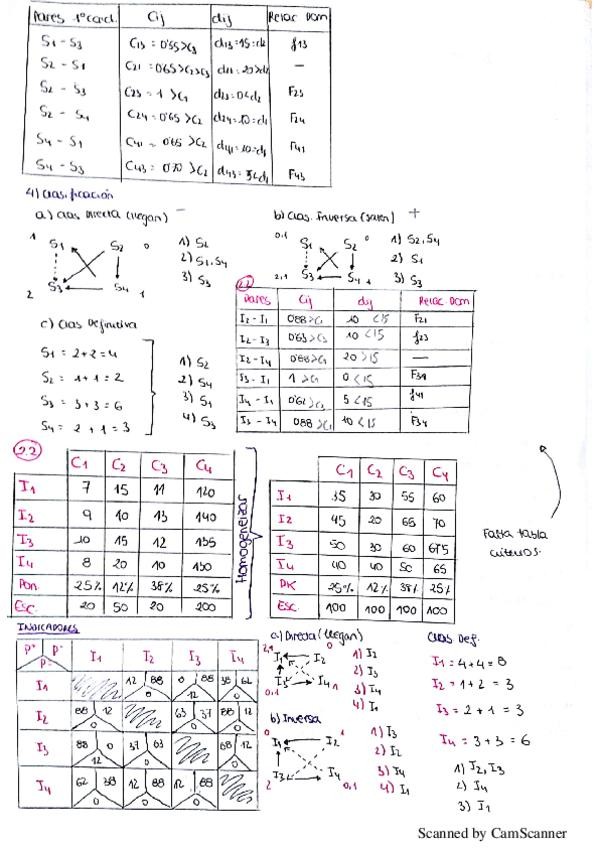 Pares 1ªcad. Cij dij Relac Dom
S1 - S3 C13 = 0'55>C3 d13=15=d2 f13
S2 - S1 C21 = 0'65>C2>C3 —
S2 - S3 C23 = 1 >C1 F23
S2 - S4 C24 = 0'65 >C2 d24=10=d1 F24
S4 - S1 C41 = 0'65 >C2 d41=10=d1 F41
S4 - S3 C43 = 0'70 >C2 F43
4) Clasificación
a) Clas Directa (llegan) −
b) Clas. Inversa (salen) +
1 S1 S2 0
2 S3 S4 1
1) S2
2) S1, S4
3) S3
0,1 S1 S2 0
2,1 S3 S4 1
1) S2, S4
2) S1
3) S3
c) Clas Definitiva
S1 = 2+2=4
S2 = 1+1=2
S3 = 3+3=6
S4 = 2+1=3
1) S2
2) S4
3) S1
4) S3
2.2
Pares Cij dij Relac Dom
I2 - I1 0'88>C1 10 <15 F21
I2 - I3 0'63>C3 10 <15 f23
I2 - I4 0'88>C1 20 >15 —
I3 - I1 1 >C1 0<15 F31
I4 - I1 0'62>C3 5 <15 f41
I3 - I4 0'88 >C1 10<15 F34
2.2
C1 C2 C3 C4
I1 7 15 11 120
I2 9 10 13 140
I3 10 15 12 135
I4 8 20 10 130
Pon. 25% 12% 38% 25%
Esc. 20 50 20 200
Homogeneizar
C1 C2 C3 C4
I1 35 30 55 60
I2 45 20 65 70
I3 50 30 60 67'5
I4 40 40 50 65
PK 25% 12% 38% 25%
Esc. 100 100 100 100
Falta tabla
criterios.
INDICADORES
P+ P- P=
I1 I2 I3 I4
I1 12 88 0 0 88 12 38 62 0
I2 88 12 0 63 37 0 88 12 0
I3 88 0 12 37 63 0 88 12 0
I4 62 38 0 12 88 0 12 88 0
a) Directa (llegan)
I1 I2 0
0,1 I3 I4 1
1) I2
2) I3
3) I4
4) I1
b) Inversa
0 I1 I2
2 I3 I4 0,1
1) I3
2) I2
3) I4
4) I1
Clas Def.
I1 = 4+4 = 8
I2 = 1+2 = 3
I3 = 2+1 = 3
I4 = 3+3 = 6
1) I2, I3
2) I4
3) I1
Scanned by CamScanner